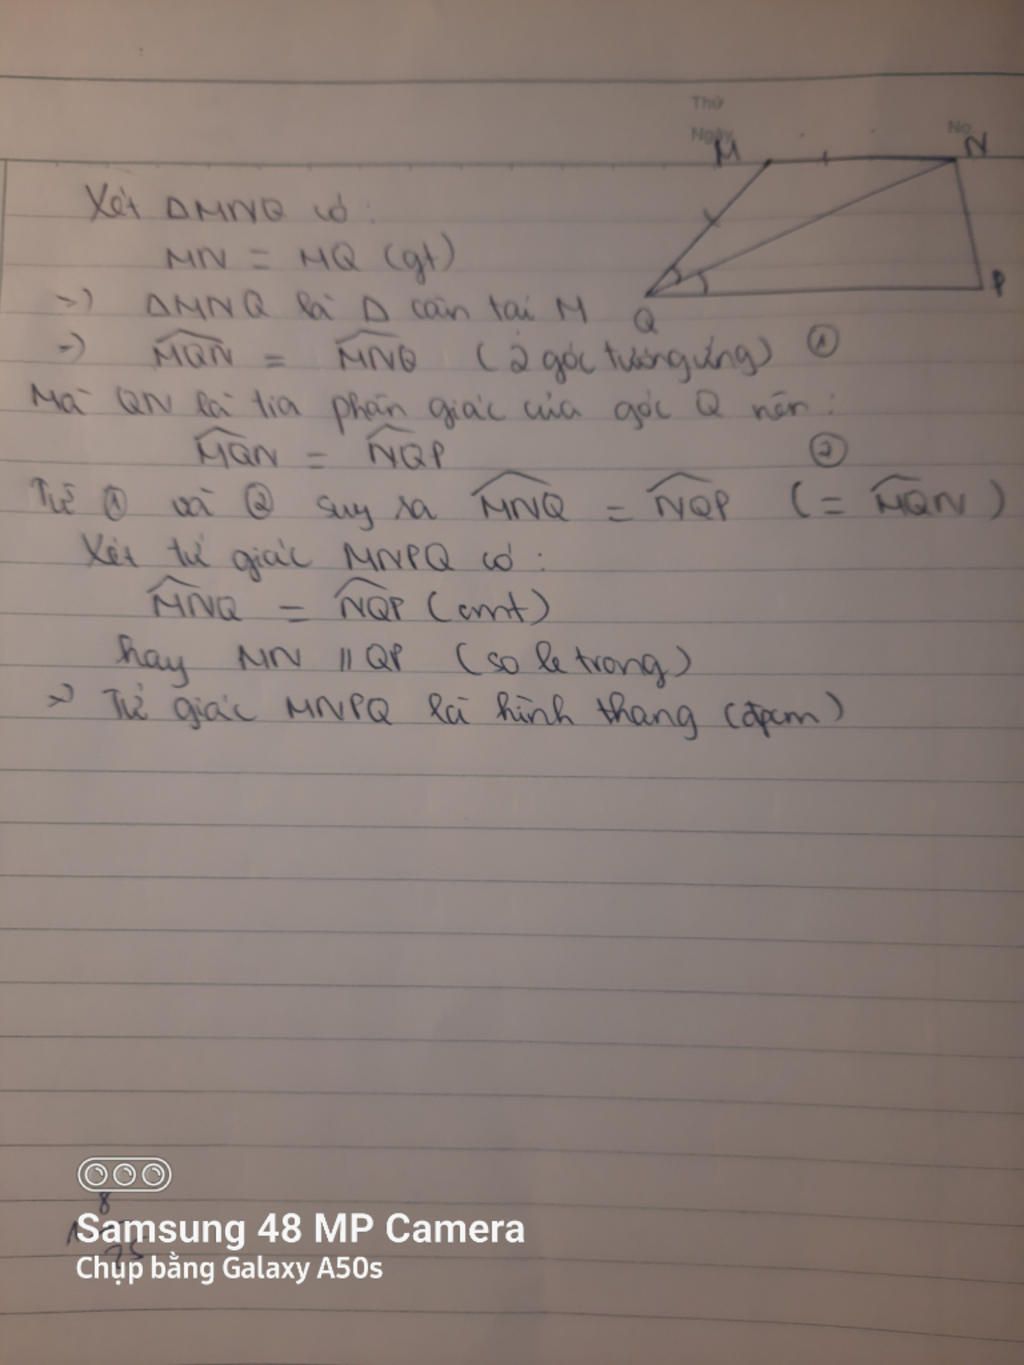 Thứ
Ngày No
M N
Xét ΔMNQ có:
MN = MQ (gt)
=> ΔMNQ là Δ cân tại M
Q P
=> MQN = MNQ (2 góc tương ứng) ①
Mà QN là tia phân giác của góc Q nên:
MQN = NQP ②
Từ ① và ② suy ra MNQ = NQP (= MQN)
Xét tứ giác MNPQ có:
MNQ = NQP (cmt)
hay MN // QP (so le trong)
=> Tứ giác MNPQ là hình thang (đpcm)
8
Samsung 48 MP Camera
25
Chụp bằng Galaxy A50s